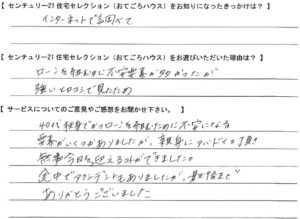 【 センチュリー21 住宅セレクション（おてごろハウス）をお知りになったきっかけは？ 】
インターネットで調べて
【 センチュリー21 住宅セレクション（おてごろハウス）をお選びいただいた理由は？ 】
ローンを組むのに不安要素が多かったが
強いとロコミで見たため
【 サービスについてのご意見やご感想をお聞かせ下さい。 】
40代独身でかつローンを組むために不安になる
要素がいくつかありましたが、親身にアドバイス頂き
無事今日を迎える事ができました。
途中でアクシデントもありましたが、最後まで
ありがとうございました